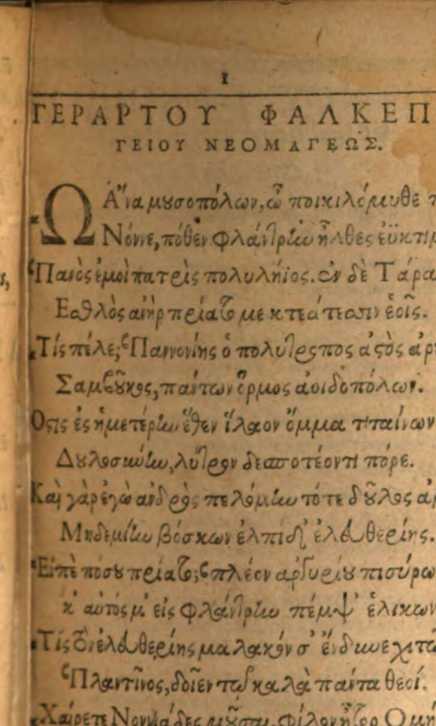 I
ΓΕΡΑΡΤΟΥ ΦΑΛΚΕΠ
ΓΕΙΟΥ ΝΕΟΜΑΓΕΩΣ.
Ω Ἄνα μυσοπόλων, ὦ ποικιλόμυθε
Νόννε, πόθεν Φλάνδρίω ἦλθες ἐϋκτιμ
Πανὸς ἐμοὶ πατρὶς πολυλήϊος. ἐν δὲ Τάρα
Ἐσθλὸς ἀνὴρ πρίατό με κτεάτεσσιν ἑοῖς.
Τίς πέλε; Παννονίης ὁ πολύτροπος ἀστὸς ἀρ
Σαμβῦκος, πάντων ὅρμος ἀοιδοπόλων.
Ὅστις ἐς ἡμετέρίω ἕθεν ἵλαον ὄμμα τιταίνων
Δυλοσύνίω, λύτρον δεσποτέοντι πόρε.
Καὶ γὰρ ἐγὼ ἀνδρὸς πελόμίω τότε δῦλος
Μηδεμίίω βόσκων ἐλπίδ' ἐλευθερίης.
Εἰπὲ πόσυ πρίατο; πλέον ἀργυρίυ πισύρω
κ' αὐτός μ' εἰς Φλάνδρίω πέμψ' ἑλικων
Τίς δ' ἐλευθερίης μαλακόν σ' ἔνδυνε χιτῶ
Πλαντῖνος, δοῖεν τῷ καλὰ πάντα θεοί.
Χαίρετε